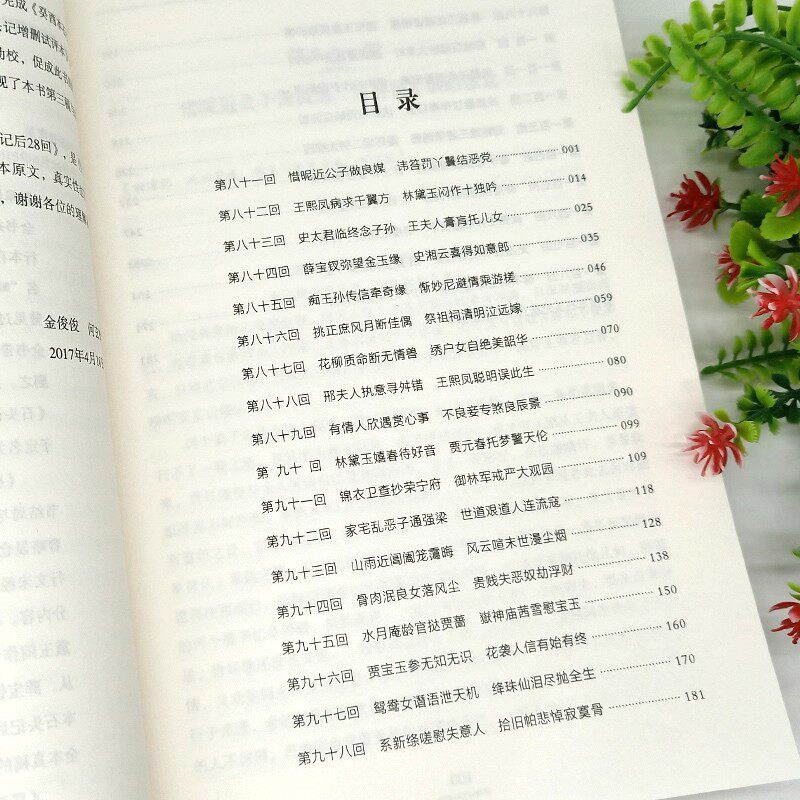 完成《癸酉本
记增删试评本
劝校，促成此书
现了本书第三届
记后28回》，是
本原文，真实性
，谢谢各位的
金俊俊 何
2017年4月16
目录
第八十一回 惜昵近公子做良媒 讳答罚丫鬟结恶党 001
第八十二回 王熙凤病求千翼方 林黛玉闷作十独吟 014
第八十三回 史太君临终念子孙 王夫人膏肓托儿女 025
第八十四回 薛宝钗弥望金玉缘 史湘云喜得如意郎 035
第八十五回 痴王孙传信牵奇缘 惭妙尼避情乘游槎 046
第八十六回 挑正庶风月断佳偶 祭祖祠清明泣远嫁 059
第八十七回 花柳质命断无情兽 绣户女自绝美韶华 070
第八十八回 邢夫人执意寻舛错 王熙凤聪明误此生 080
第八十九回 有情人欣遇赏心事 不良妾专煞良辰景 090
第九十回 林黛玉嬉春待好音 贾元春托梦警天伦 099
第九十一回 锦衣卫查抄荣宁府 御林军戒严大观园 109
第九十二回 家宅乱恶子通强梁 世道艰道人连流寇 118
第九十三回 山雨近阊阖笼霭晦 风云喧末世漫尘烟 128
第九十四回 骨肉泯良女落风尘 贵贱失恶奴劫浮财 138
第九十五回 水月庵龄官挞贾蔷 嶽神庙茜雪慰宝玉 150
第九十六回 贾宝玉参无知无识 花袭人信有始有终 160
第九十七回 鸳鸯女谮语泄天机 绛珠仙泪尽抛全生 170
第九十八回 系新绦嗟慰失意人 拾旧帕悲悼寂寞骨 181